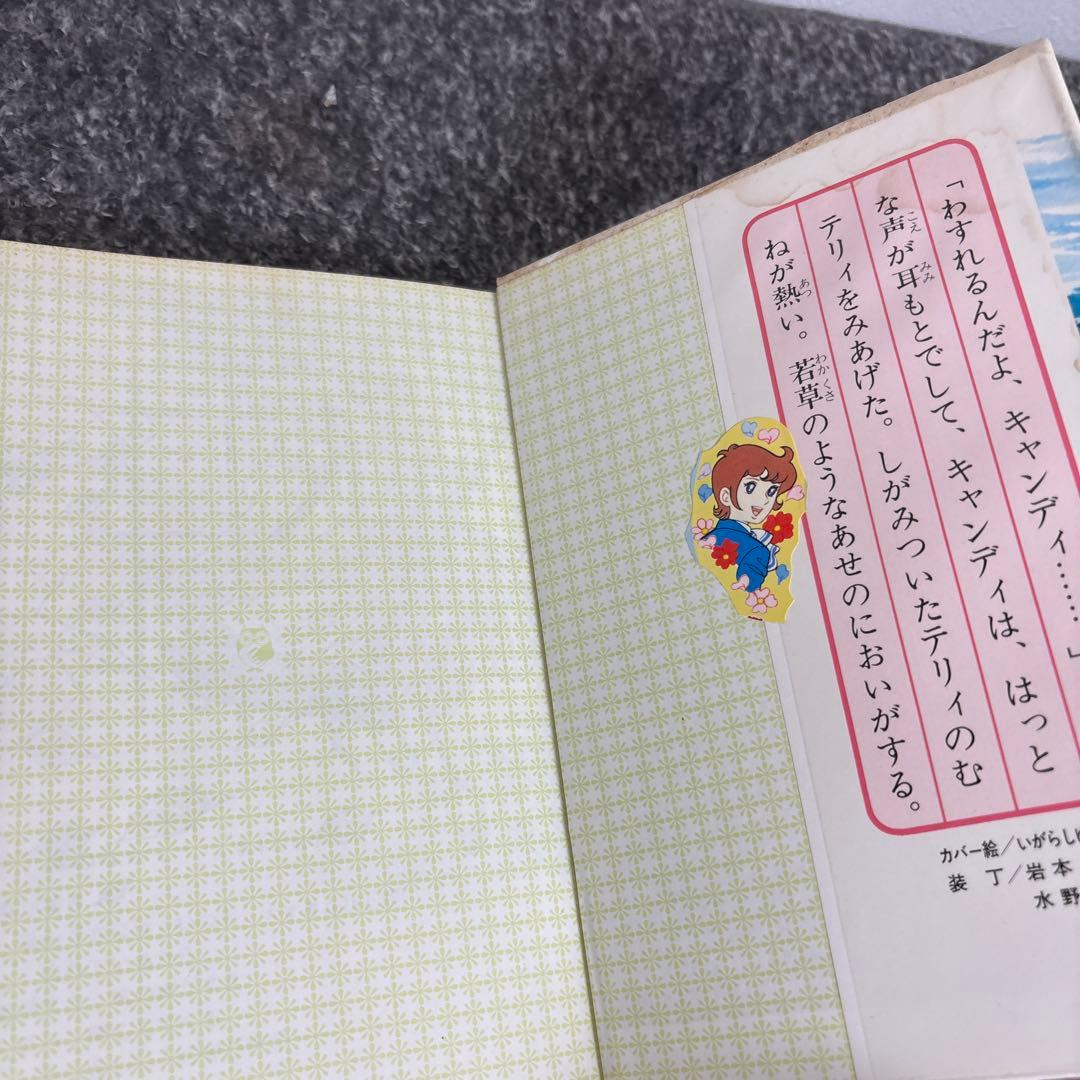 「わすれるんだよ、キャンディ……」
な声が耳もとでして、キャンディは、はっと
テリィをみあげた。しがみついたテリィのむ
ねが熱い。若草のようなあせのにおいがする。
カバー絵／いがらし
装丁／岩本
水野